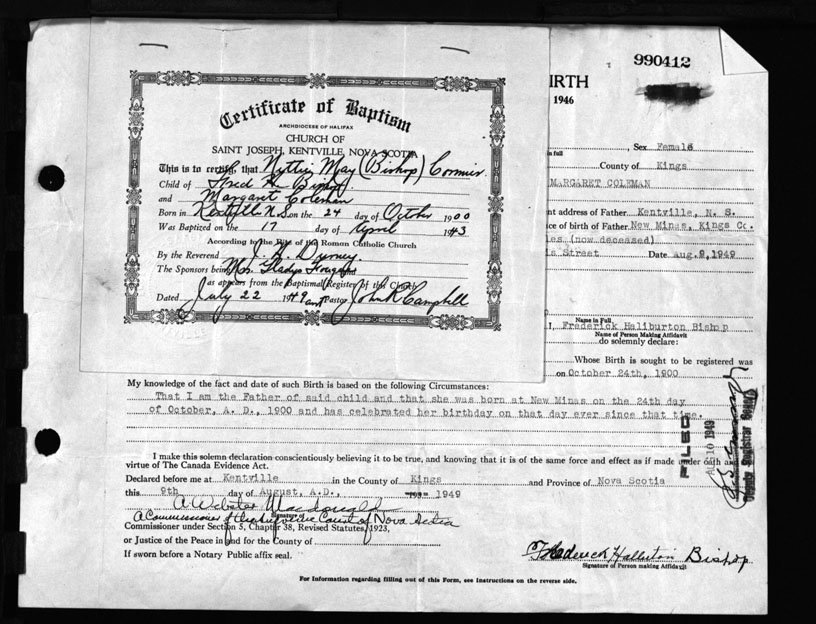 990412
BIRTH
1946
Certificate of Baptism
ARCHDIOCESE OF HALIFAX
CHURCH OF
SAINT JOSEPH, KENTVILLE, NOVA SCOTIA
This is to certify, that May (Bishop) Cormier.
Child of Fred H. Bishop.
and Margaret Coleman
Born in Kentville N.S. on the 24 day of October 1900
Was Baptized on the 17 day of April 1943
According to the Rite of the Roman Catholic Church
By the Reverend J. H. Durney
The Sponsors being Mrs. Gladys and
as appears from the Baptismal Register of this Church
Dated July 22 1949 Pastor John R Campbell
in full , Sex Female
County of Kings
MARGARET COLEMAN
nt address of Father Kentville, N. S.
ce of birth of Father New Minas, Kings Co.
les (now deceased)
is Street Date Aug.9,1949
Name in Full
I, Frederick Haliburton Bishop
Name of Person Making Affidavit
do solemnly declare:
Whose Birth is sought to be registered was
on October 24th, 1900
My knowledge of the fact and date of such Birth is based on the following Circumstances:
That I am the Father of said child and that she was born at New Minas on the 24th day
of October, A. D., 1900 and has celebrated her birthday on that day ever since that time.
I make this solemn declaration conscientiously believing it to be true, and knowing that it is of the same force and effect as if made under oath and
virtue of The Canada Evidence Act.
Declared before me at Kentville in the County of Kings and Province of Nova Scotia
this 9th day of August, A.D., 1949
A Webster Macdonald
Signature of
A Commissioner of the Supreme Court of Nova Scotia
Commissioner under Section 5, Chapter 38, Revised Statutes, 1923,
or Justice of the Peace in and for the County of
If sworn before a Notary Public affix seal.
Frederick Haliburton Bishop
Signature of Person making Affidavit
For Information regarding filling out of this Form, see Instructions on the reverse side.
FILED
AUG 10 1949